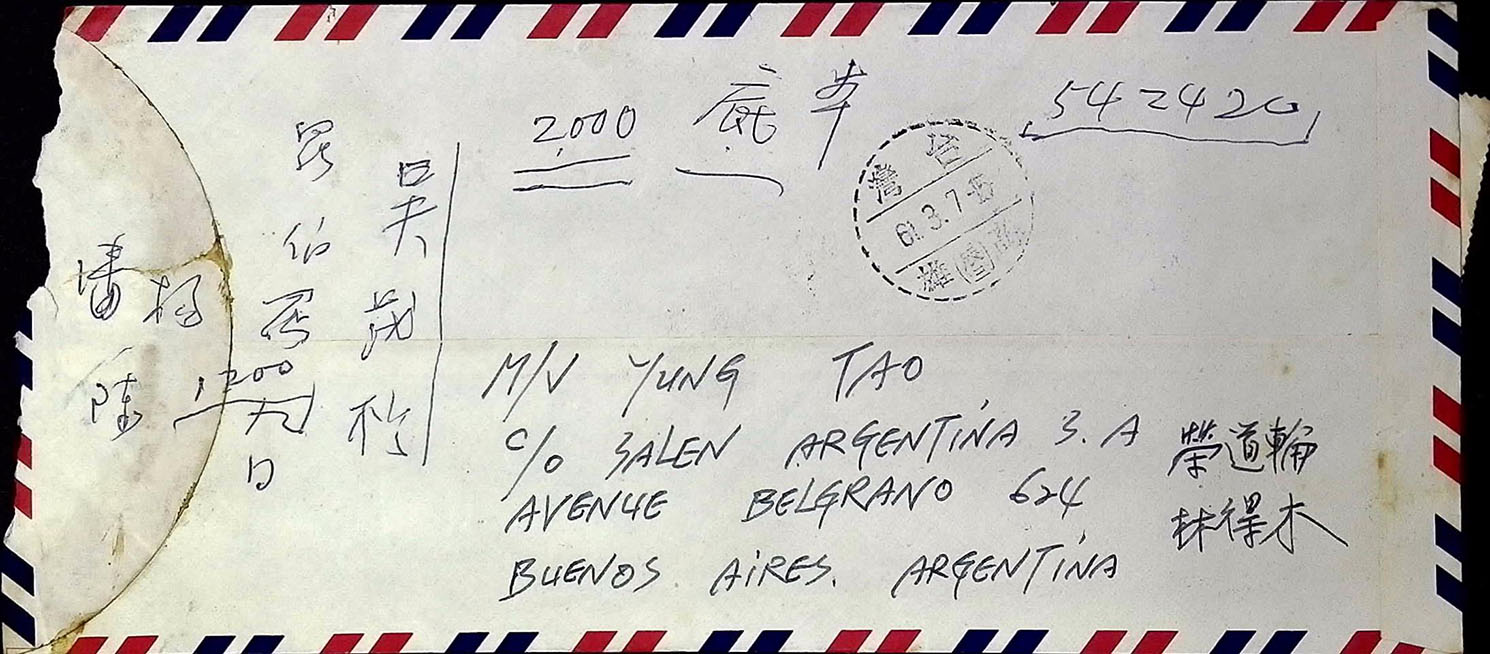 2,000 底本
542420
台灣
61.3.7
高雄
吳茂松
伯
九日
潘 楊
陳 1200
M/V YUNG TAO
C/O SALEN ARGENTINA S.A
AVENUE BELGRANO 624
BUENOS AIRES. ARGENTINA
榮道輪
林得木